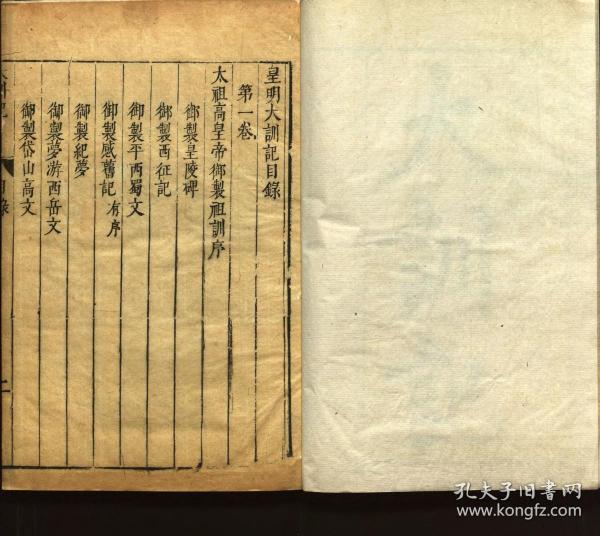 皇明大訓記目錄
第一卷
太祖高皇帝御製祖訓序
御製皇陵碑
御製西征記
御製平西蜀文
御製感舊記有序
御製紀夢
御製夢游西岳文
御製岱山高文
目錄
一
孔夫子旧书网
www.kongfz.com